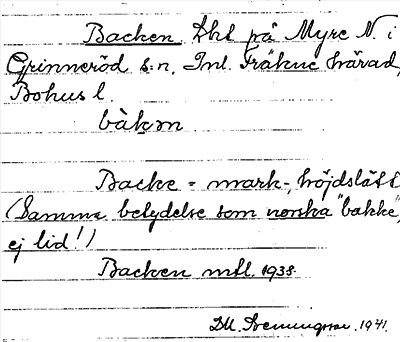 Backen Lht på Myre N. i
Grinneröd s:n, Inl. Fräkne härad,
Bohus l.
bàkɘn
Backe = mark-, höjdslätt
(Samma betydelse som norska "bakke",
ej lid!)
Backen mtl. 1938.
1941.